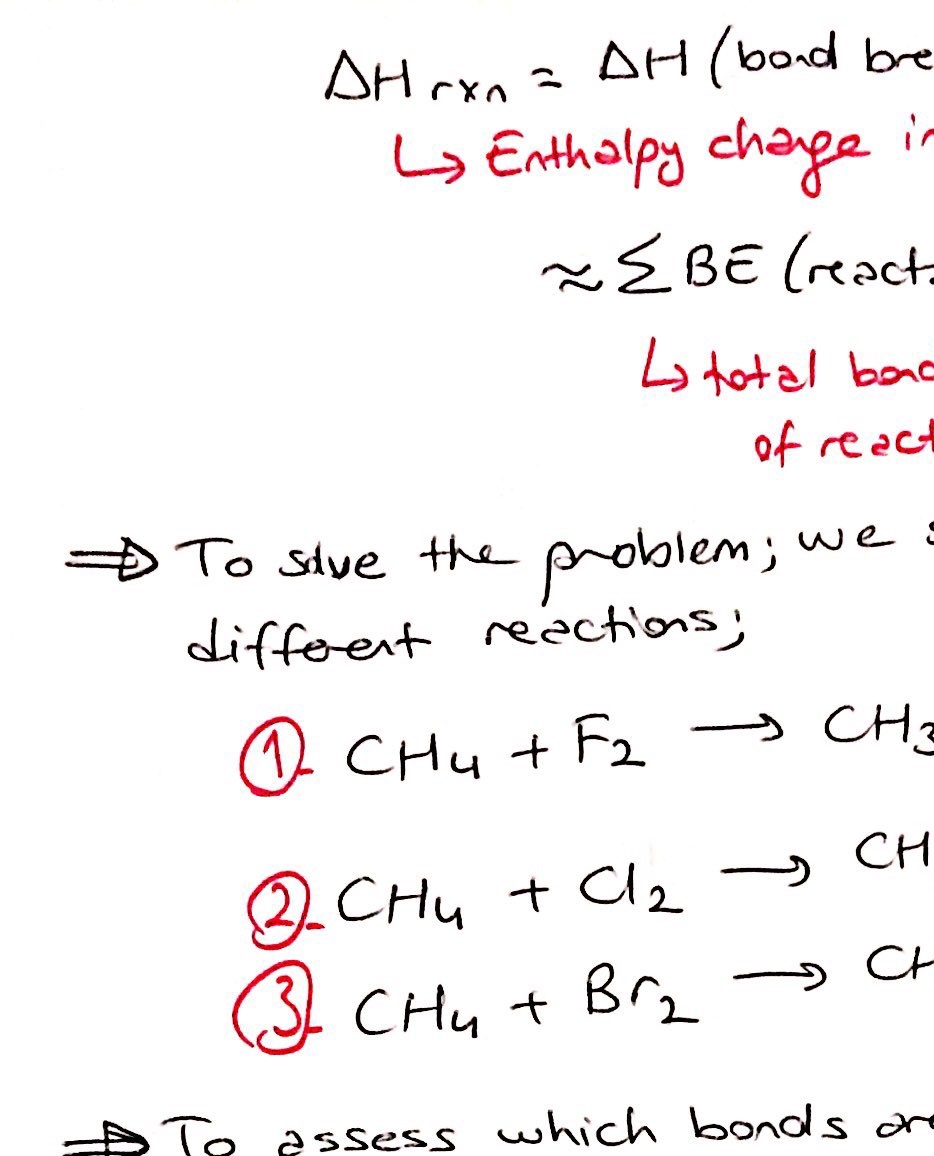 ΔH rxn = ΔH (bond bre
↳ Enthalpy change in
≈ Σ BE (react
↳ total bond
of react
⇒ To solve the problem; we s
different reactions;
①- CH₄ + F₂ → CH₃
②- CH₄ + Cl₂ → CH
③- CH₄ + Br₂ → CH
⇒ To assess which bonds are